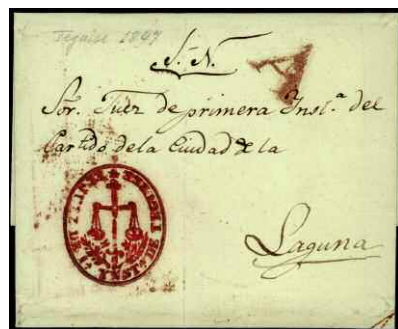 Teguise 1847
S. N.
A
Sor. Juez de primera Inst.ª del
Partido de la Ciudad de la
Laguna